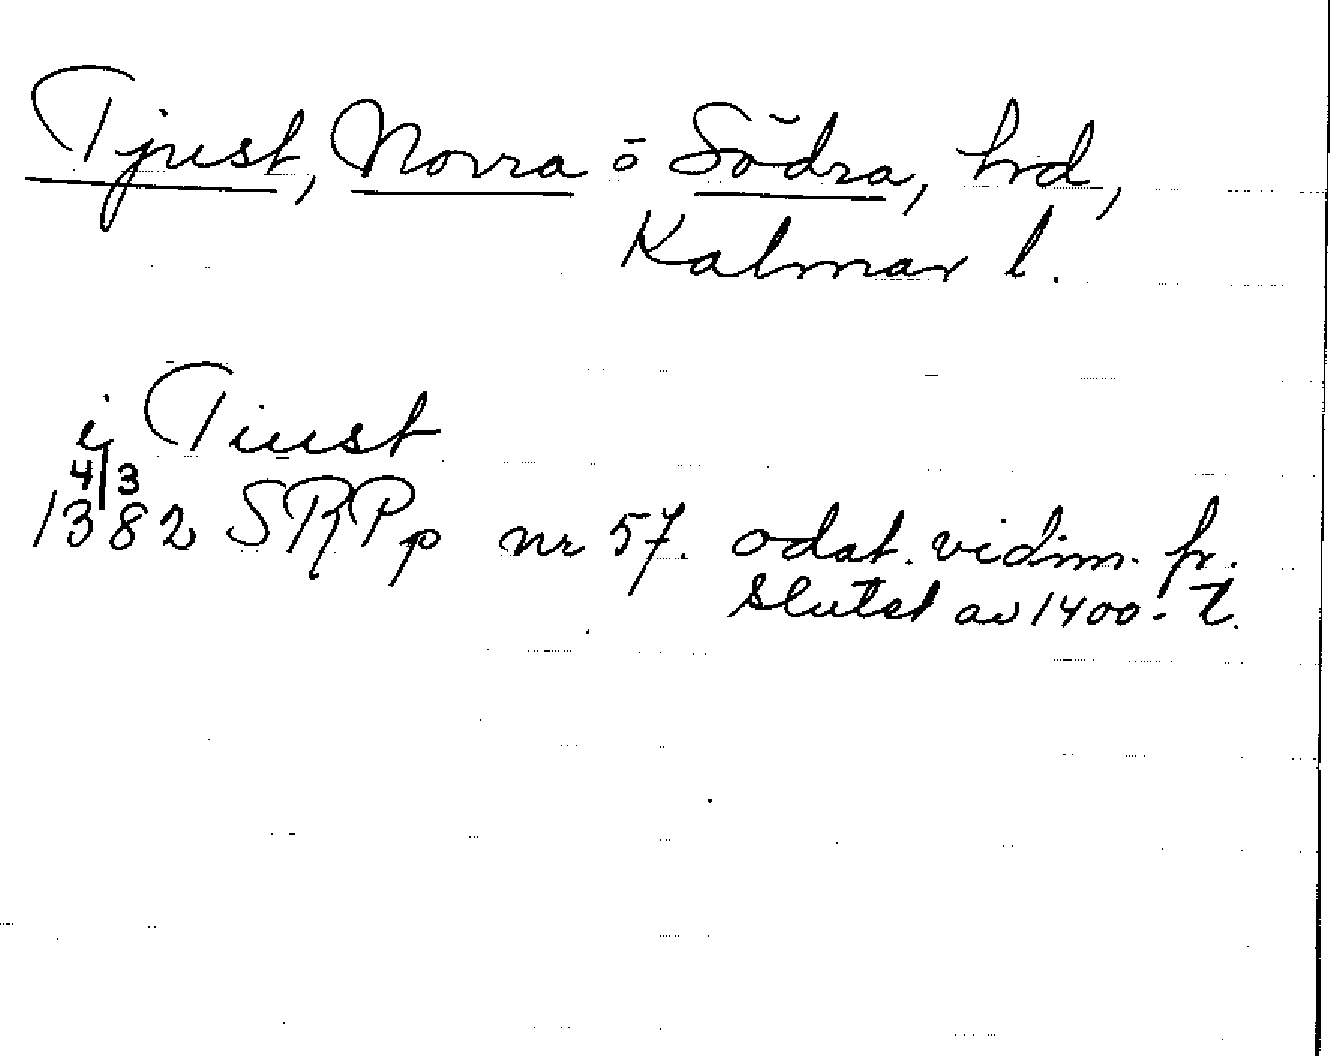 Tjust, Norra o Södra, hrd,
Kalmar l.
i Tiust
4/3
1382 SRPp nr 57. odat. vidim. fr.
slutet av 1400-t.